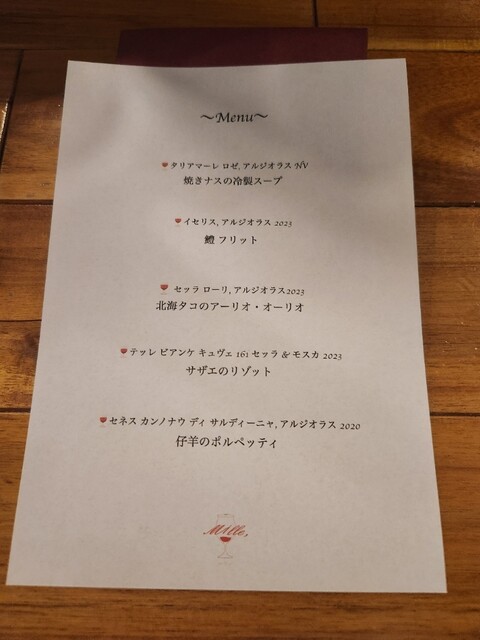 ～Menu～
タリアマーレ ロゼ, アルジオラス NV
焼きナスの冷製スープ
イセリス, アルジオラス 2023
鱧 フリット
セッラ ローリ, アルジオラス2023
北海タコのアーリオ・オーリオ
テッレ ビアンケ キュヴェ 161 セッラ & モスカ 2023
サザエのリゾット
セネス カンノナウ ディ サルディーニャ, アルジオラス 2020
仔羊のポルペッティ
Mille,